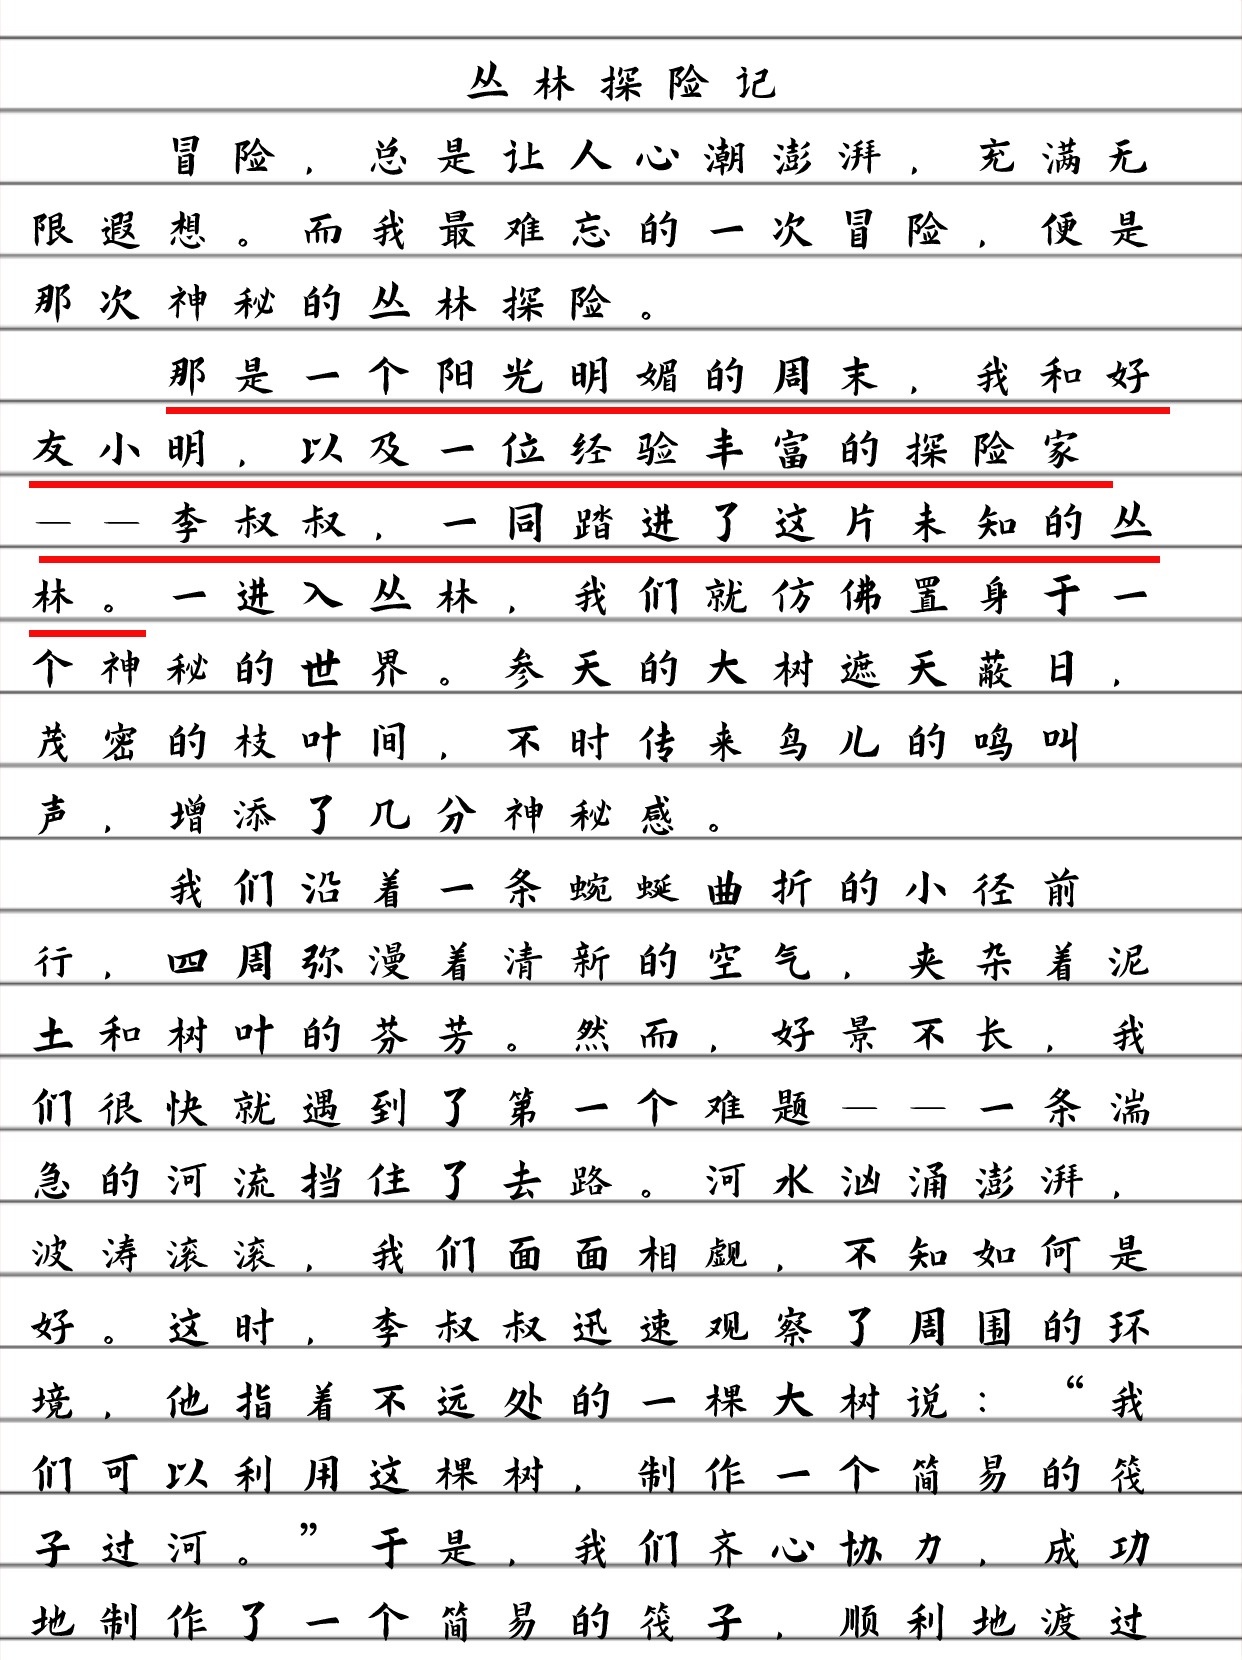 丛林探险记
冒险，总是让人心潮澎湃，充满无
限遐想。而我最难忘的一次冒险，便是
那次神秘的丛林探险。
那是一个阳光明媚的周末，我和好
友小明，以及一位经验丰富的探险家
——李叔叔，一同踏进了这片未知的丛
林。一进入丛林，我们就仿佛置身于一
个神秘的世界。参天的大树遮天蔽日，
茂密的枝叶间，不时传来鸟儿的鸣叫
声，增添了几分神秘感。
我们沿着一条蜿蜒曲折的小径前
行，四周弥漫着清新的空气，夹杂着泥
土和树叶的芬芳。然而，好景不长，我
们很快就遇到了第一个难题——一条湍
急的河流挡住了去路。河水汹涌澎湃，
波涛滚滚，我们面面相觑，不知如何是
好。这时，李叔叔迅速观察了周围的环
境，他指着不远处的一棵大树说：“我
们可以利用这棵树，制作一个简易的筏
子过河。”于是，我们齐心协力，成功
地制作了一个简易的筏子，顺利地渡过